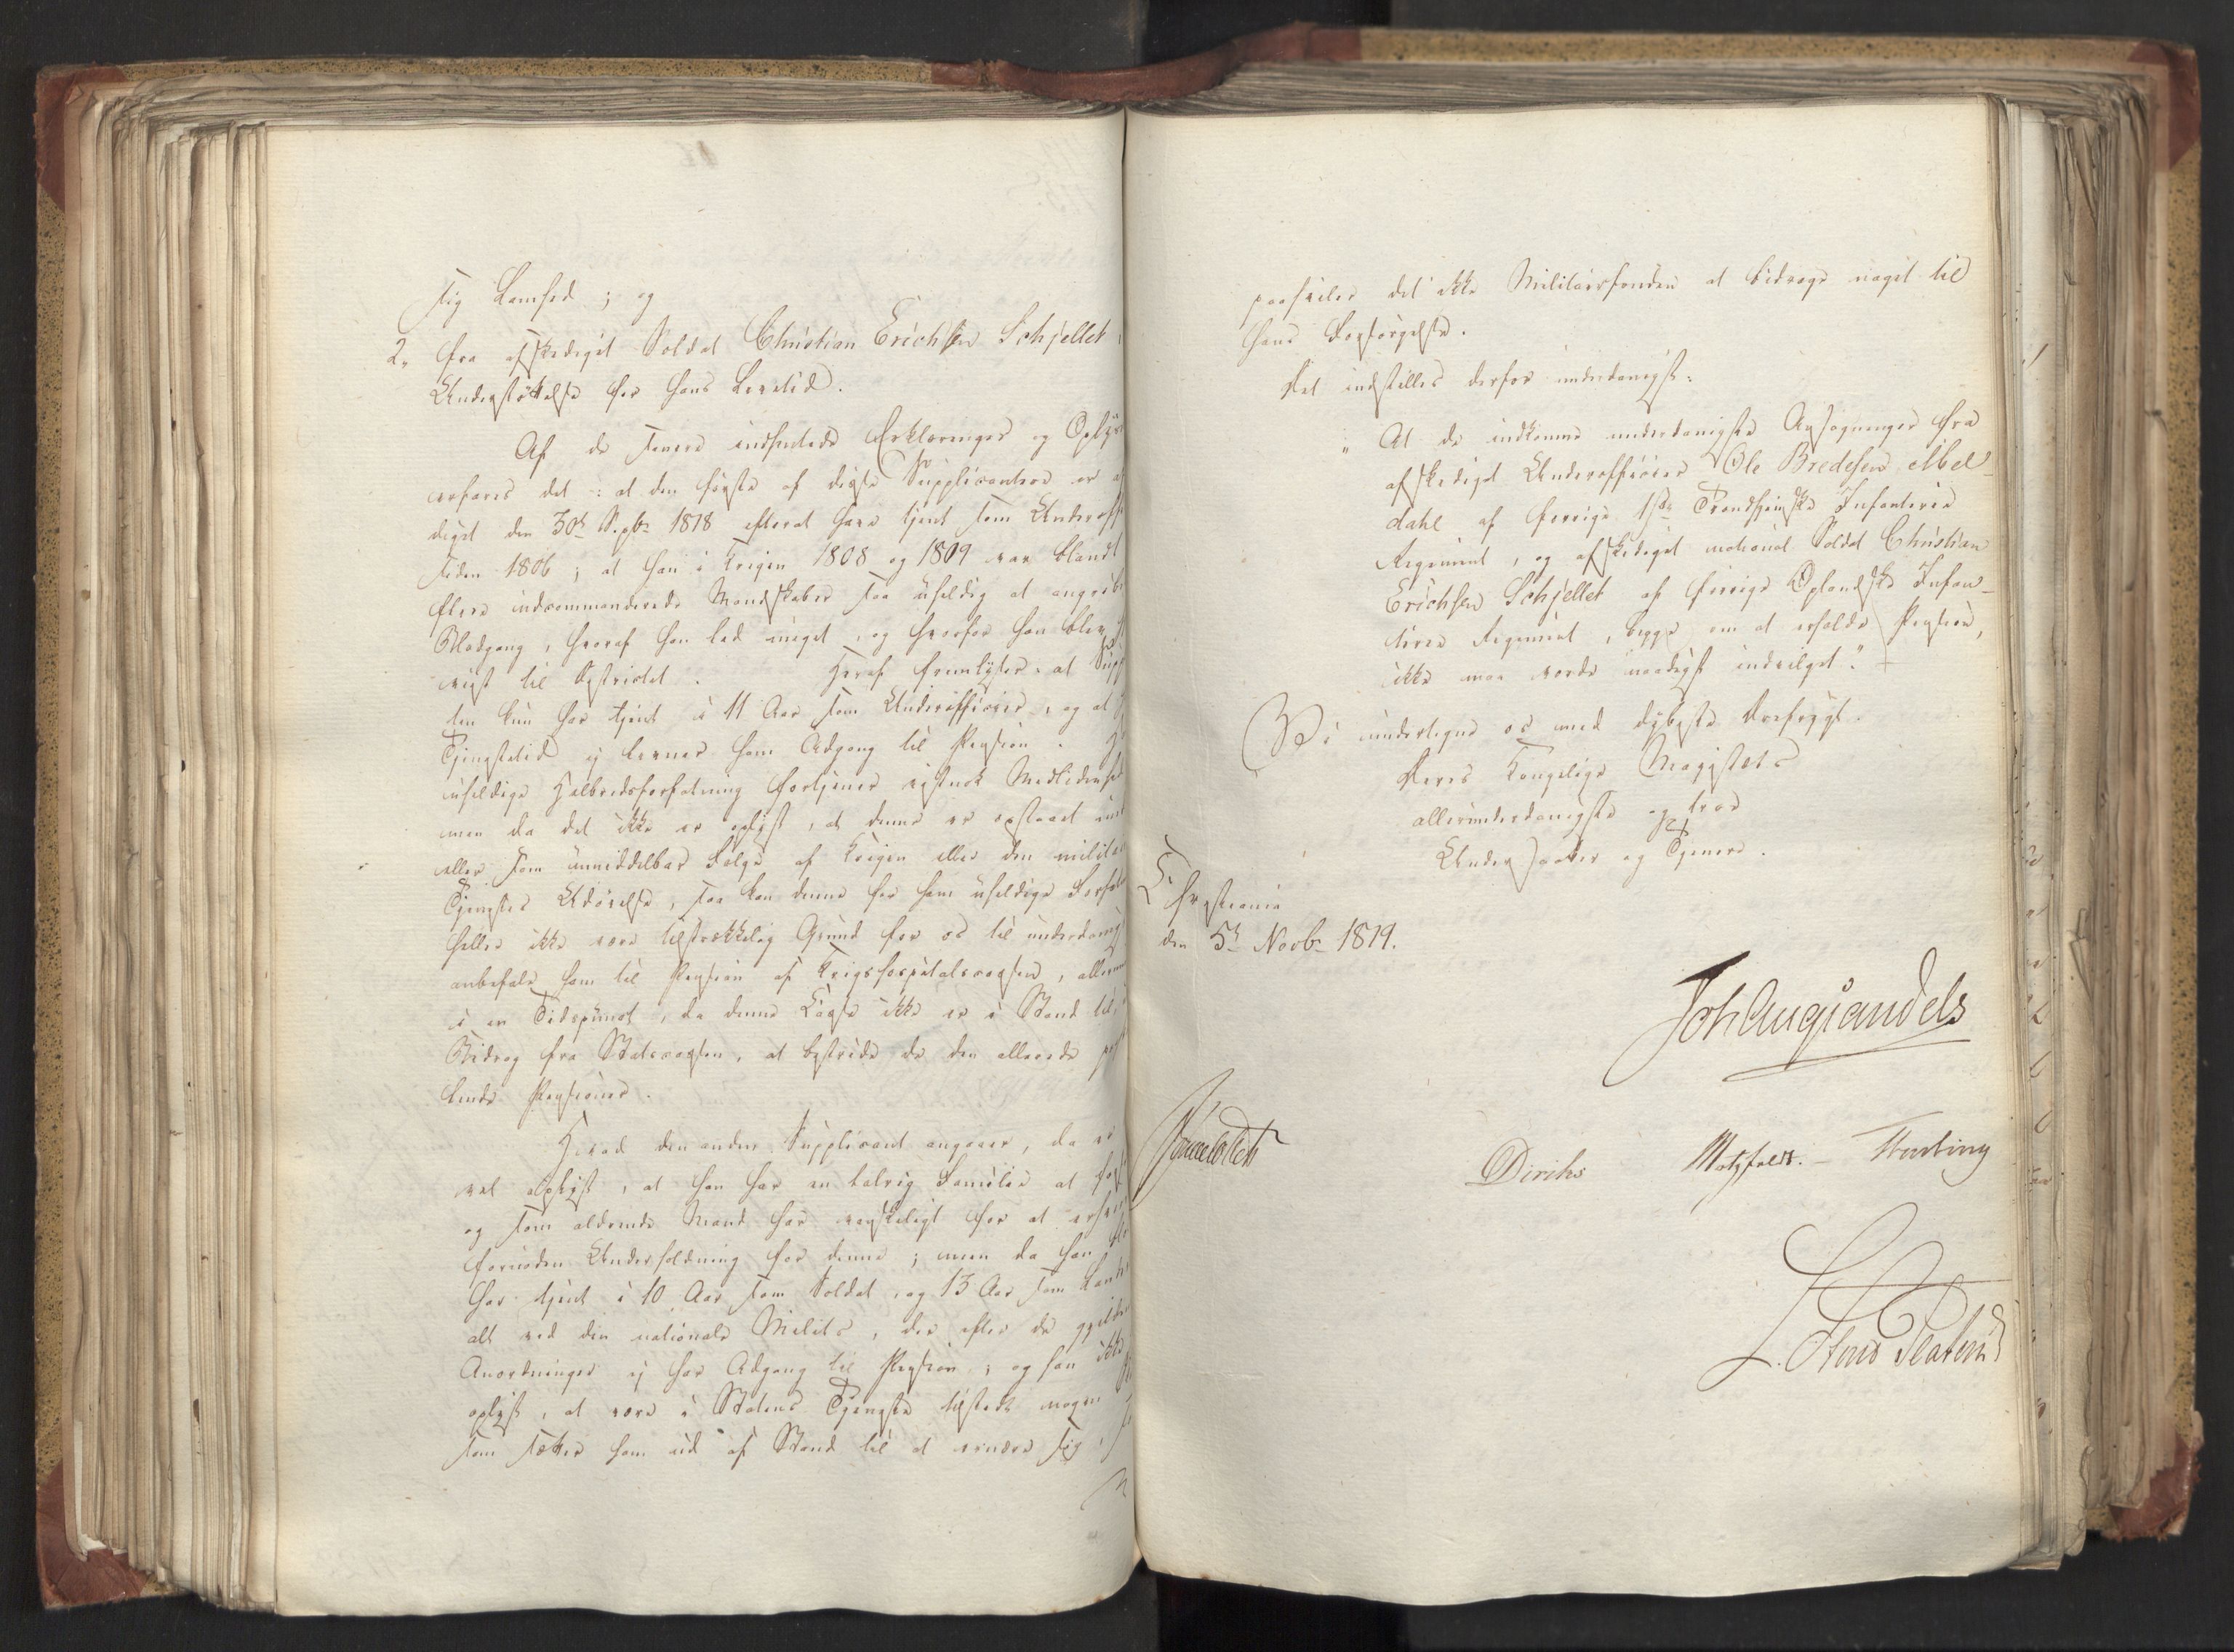 sig Lamhed; og
2, fra afskediget Soldat Christian Erichsen Schjellet
Understöttelse for hans Levetid.
Af de senere indhentede Erklæringer og Oplys
erfares det: at den første af disse Supplicantere er af
diget den 30te Septbr 1818 efterat have tjent som Underoff
siden 1806; at han i Krigen 1808 og 1809 var blandt
flere indcommanderede Mandskaber saa uheldig at angribes
Blodgang, hvoraf han led meget, og hvorfor han blev
viist til Distriktet. Heraf fremlyser, at Supp
ten kun har tjent i 11 Aar som Underofficier, og at
Tjenestetid ej levner ham Adgang til Pension.
uheldige Helbredsforfatning fortjener vistnok Medlidenhed
men da det ikke er oplyst, at denne er opstaaet
eller som umiddelbar Følge af Krigen eller den militai
Tjenestes Udövelse, saa kan denne for ham uheldige Forfat
heller ikke være tilstrækkelig Grund for os til underdanigst
anbefale ham til Pension af Krigshospitalscassen, allermin
i en Tidspunct, da denne Casse ikke er i Stand til,
Bidrag fra Statscassen, at bestride de den allerede
lende Pensioner.
Hvad den anden Supplicant angaaer, da er
vel oplyst, at han har en talrig Familie at fors
og som aldrende Mand har vanskeligt for at erhver
fornöden Underholdning for denne; men da han
har tjent i 10 Aar som Soldat, og 13 Aar som Land
alt ved den nationale Milits, der efter de gjelden
Anordninger ej har Adgang til Pension; og han ikke
oplyst, at være i Statens Tjeneste tilstödt nogen
som sætter ham ud af Stand til at ernære sig,
paahviler det ikke Militairfonden at bidrage noget til
hans Forsörgelse.
Det indstilles derfor underdanigst:
"At de indkomne underdanigste Ansögninger fra
afskediget Underofficier Ole Bredesen Mbel-
dahl af forrige 1ste Trondhjemske Infanterie
Regiment, og afskediget national Soldat Christian
Erichsen Schjellet af forrige Oplandske Infan-
terie Regiment, begge om at erholde Pension,
ikke maa vorde naadigst indvilget."
Vi undertegne os med dybeste Ærefrygt.
Deres Kongelige Majestæts
allerunderdanigste og troe
Undersaatter og Tjenere.
Christiania
den 5te Novbr 1819.
Joh Aug Sandels
Sommerfeldt
Diriks Motzfeldt. Fasting
L. Stoud Platou